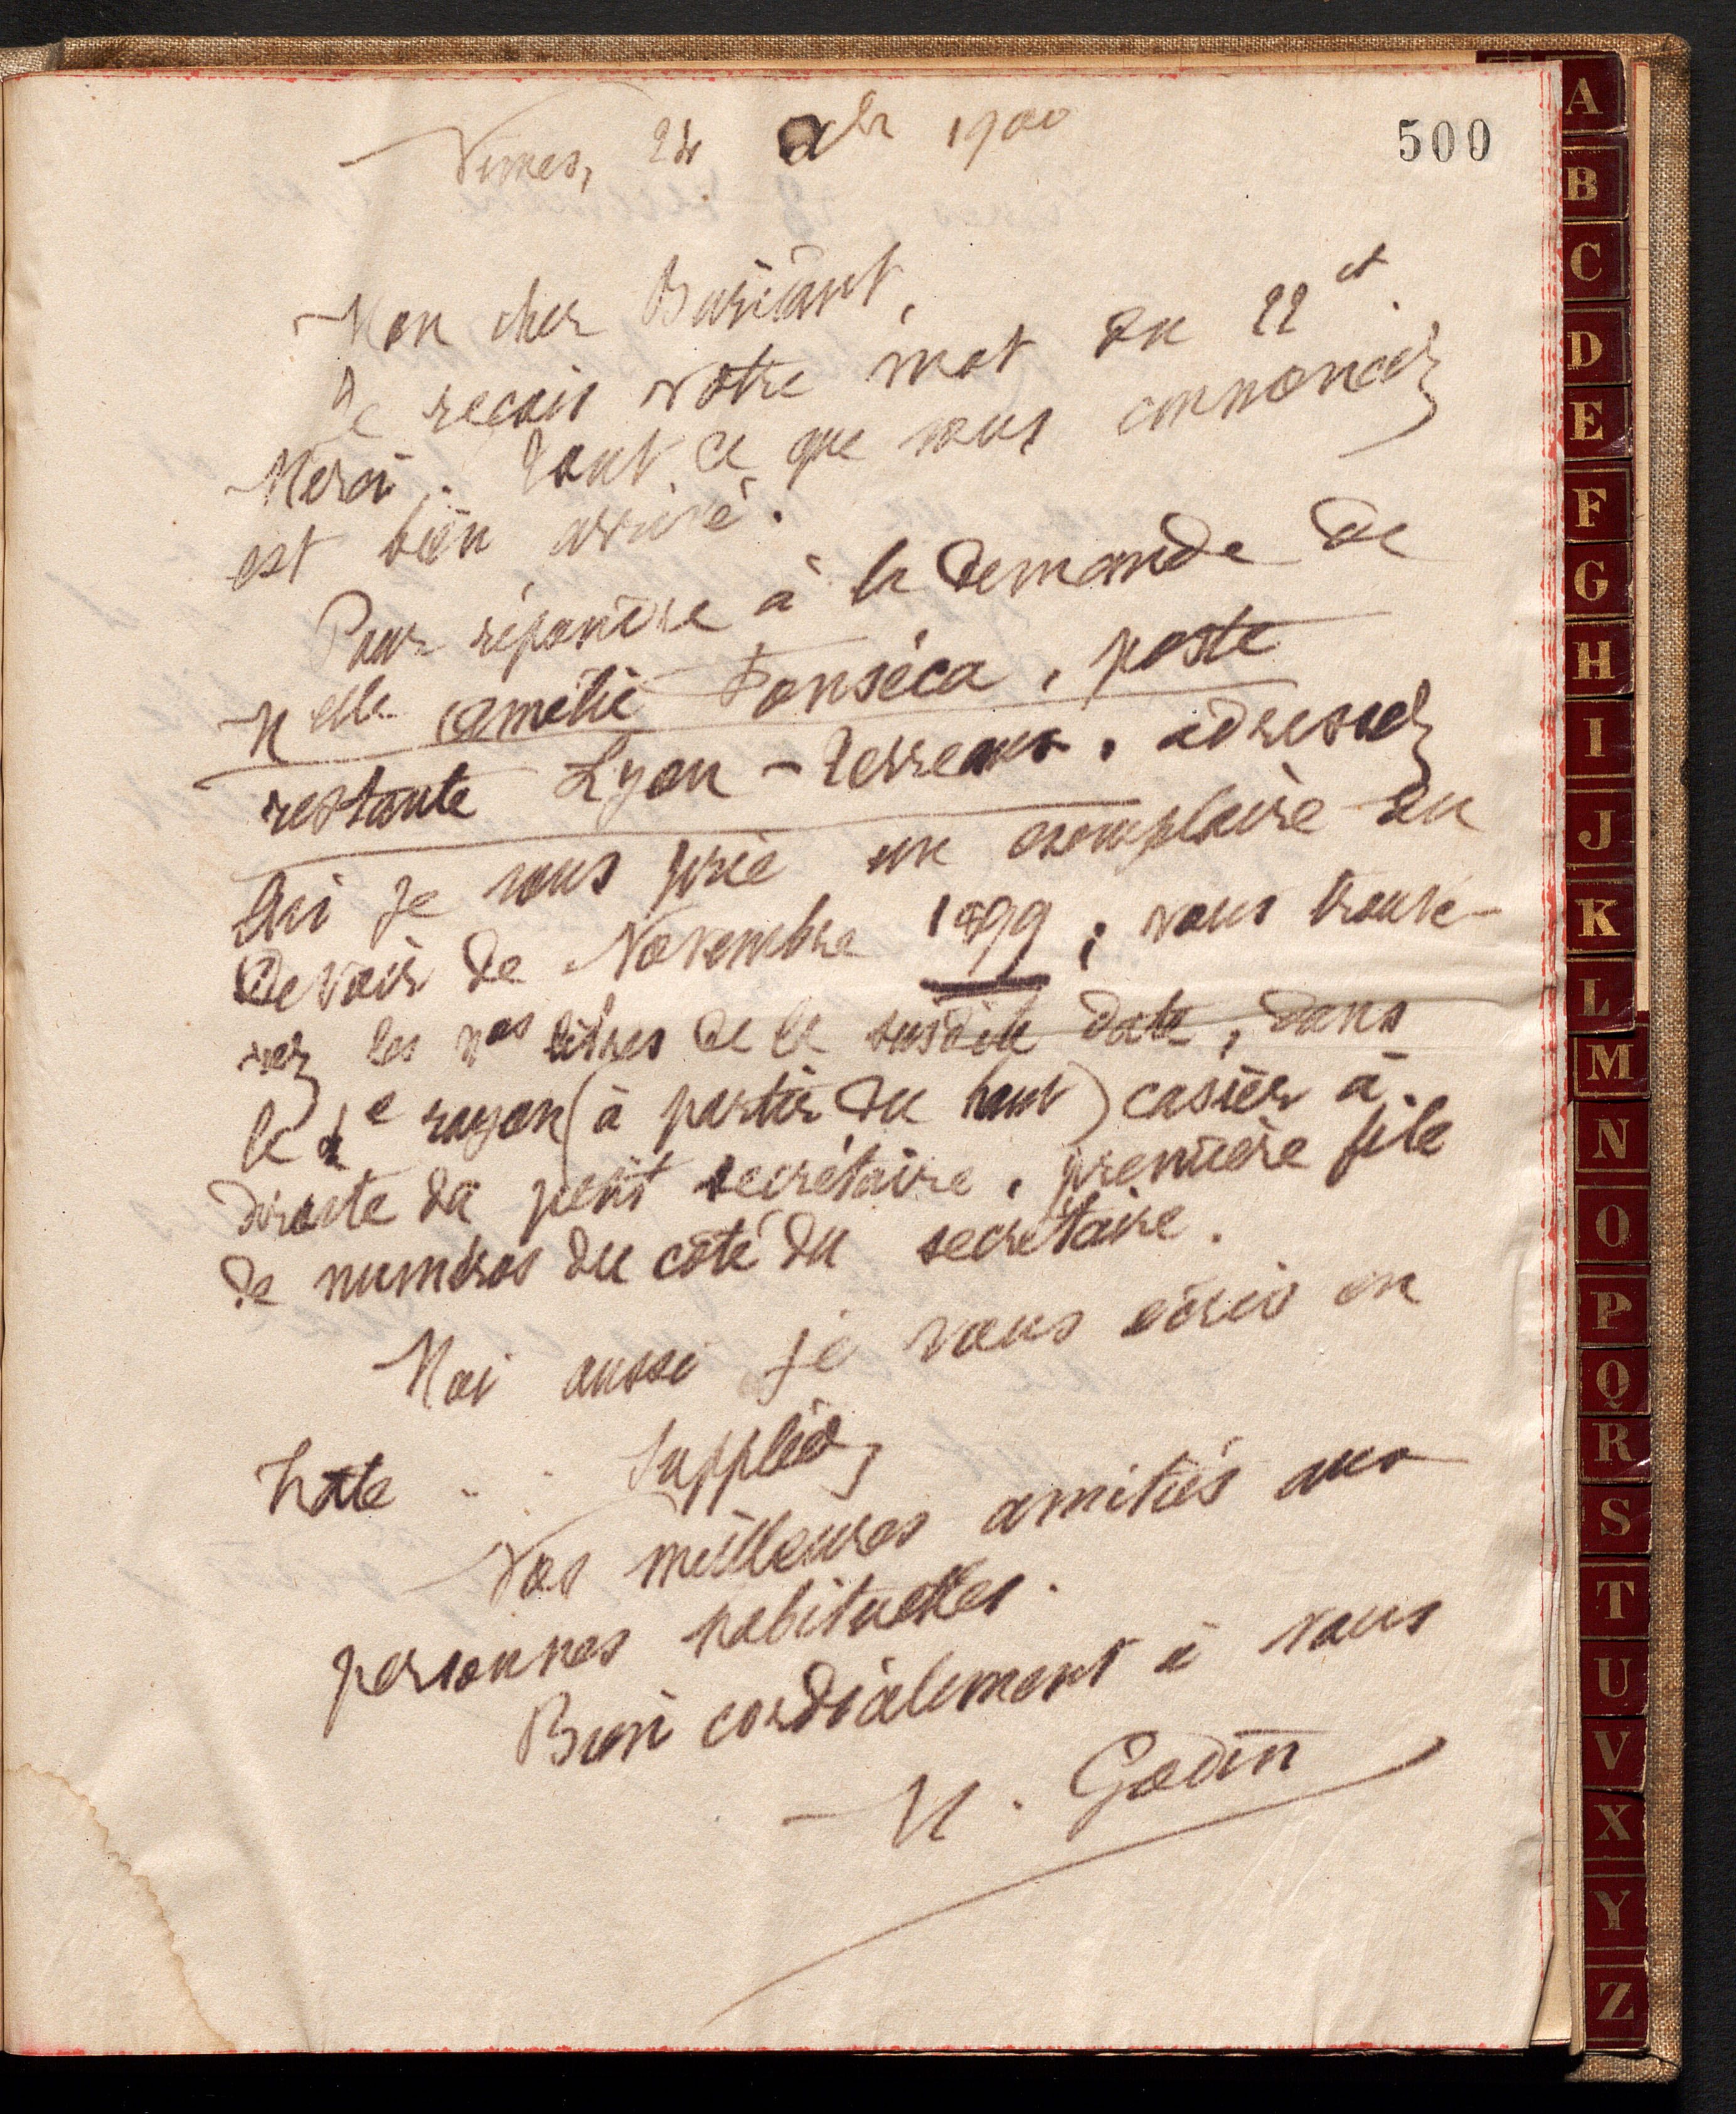 500
Nîmes, 24 Xbr 1900
Mon cher Buriant,
Je reçois votre mot du 22 ct.
Merci. Tout ce que vous annoncez
est bien arrivé.
Pour répondre à la demande de
Melle Amélie Fonséca, poste
restante Lyon-Terreaux, adressez
lui je vous prie un exemplaire du
Devoir de Novembre 1899; vous trouve-
rez les nos libres de la susdite date, dans
le 2e rayon (à partir du haut) casier à
droite du petit secrétaire, première file
de numéros du côté du secrétaire.
Moi aussi je vous écris en
hâte . . Suppléez
Nos meilleures amitiés aux
personnes habituelles.
Bien cordialement à vous
M. Godin
A
B
C
D
E
F
G
H
I
J
K
L
M
N
O
P
Q
R
S
T
U
V
X
Y
Z